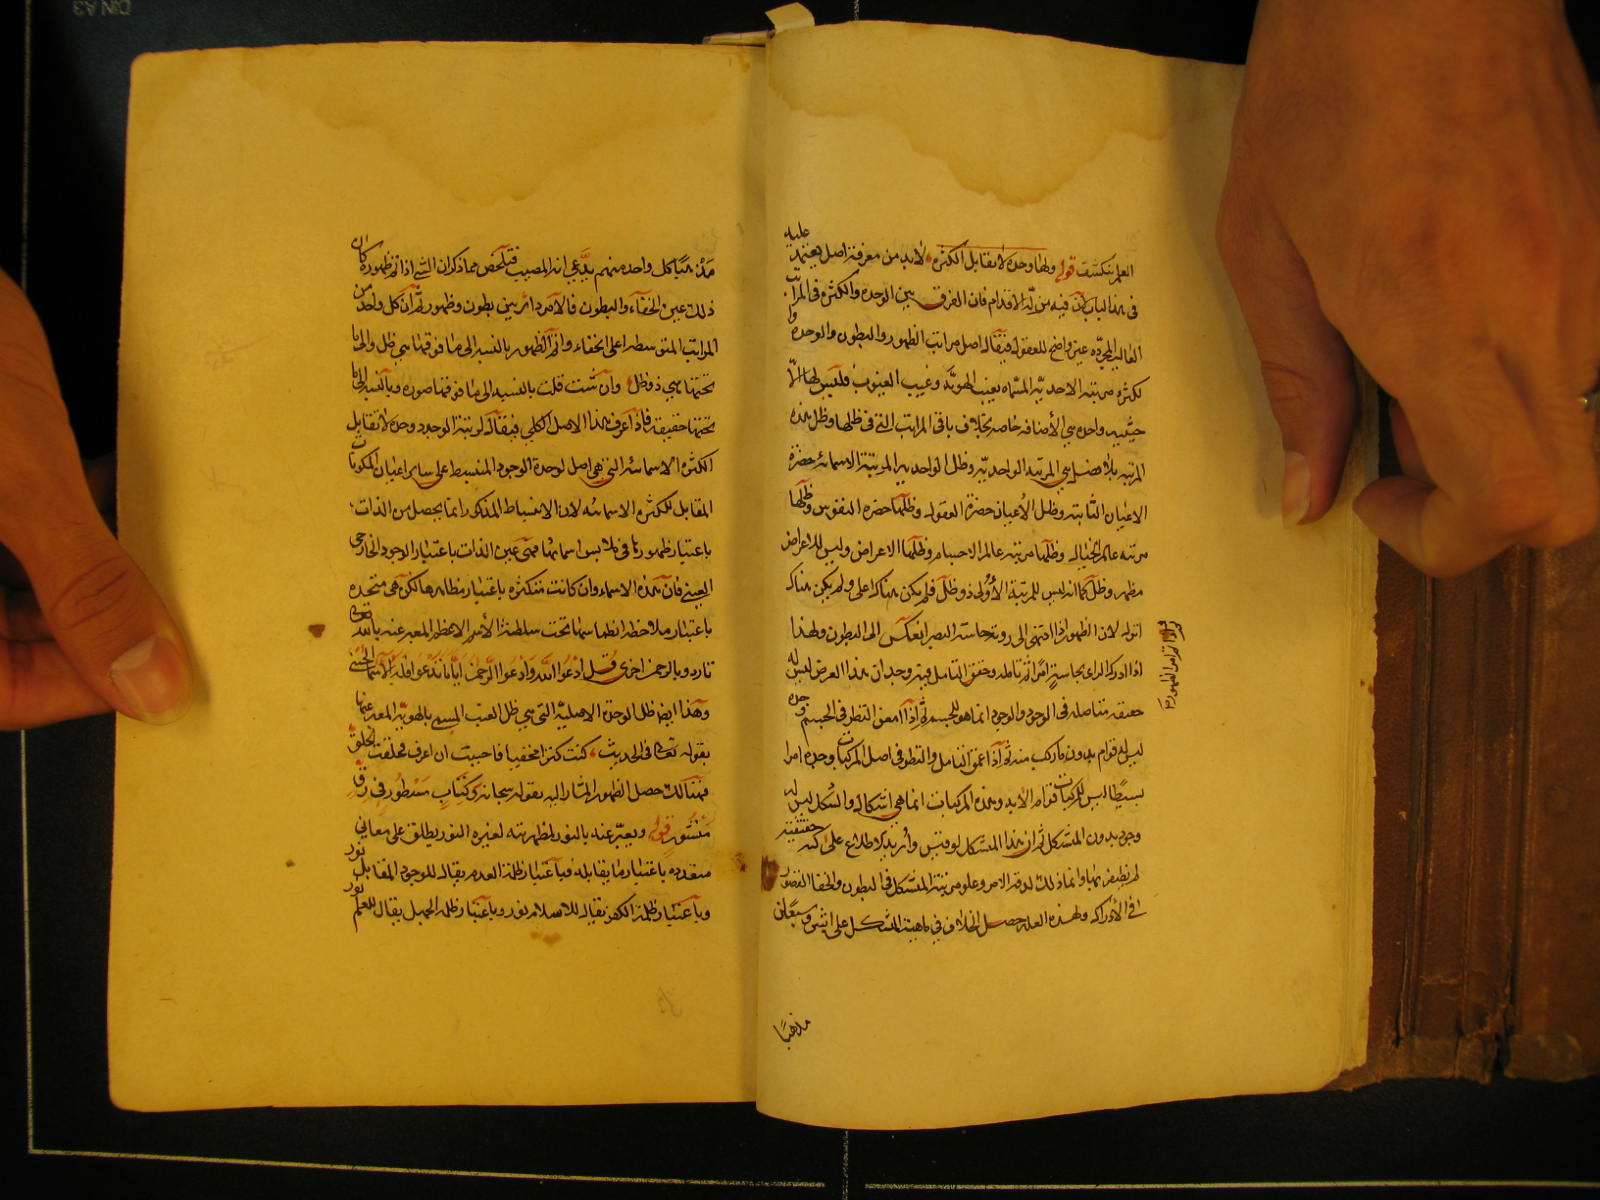 العلم تنكشف قوله ولها وحدة لا تقابل الكثرة لابد من معرفة اصل يعتمد عليه
في هذا الباب لان فيه مزلة الاقدام فان الفرق بين الوحدة والكثرة في المراتب
الغالية المجردة غير واضح للعقول فيقال اصل مراتب الظهور والبطون والوحدة وا
لكثرة مرتبة الاحدية المسماة بغيب الهوية وغيب الغيوب فليس لها الا
حيثية واحدة هي الاضافة خاصة بخلاف باقي المراتب التي في ظلها وظل هذه
المرتبة بلا فصل هي المرتبة الواحدية وظل الواحدية المرتبة الاسمائية حضرة
الاعيان الثابتة وظل الاعيان حضرة العقول وظلها حضرة النفوس وظلها
مرتبة عالم الخيال وظلها مرتبة عالم الاجسام وظلها الاعراض وليس للاعراض
مظهر وظل كما انه ليس للمرتبة الاولى ذو ظل فلم يكن هناك اعلى ولم يكن هناك
انزل لان الظهور اذا انتهى الى رؤية حاسة البصر انعكس الى البطون ولهذا
اذا ادرك الرائي بحاسته امرا ثم تامله وحقق التامل فيه وجد ان هذا العرض ليس له
حقيقة متاصلة في الوجود والوجود انما هو للجسم ثم اذا امعن النظر في الجسم وجده
ليس له قوام بدون ما ركب منه ثم اذا عمق التامل والنظر في اصل المركبات وجده امرا
بسيطا ليس للمركبات قوام الا به وهذه المركبات انما هي اشكاله والشكل ليس له
وجود بدون المتشكل ثم ان هذا المتشكل لو فتش واريد الاطلاع على كنه حقيقته
لم يظفر بها وانما ذلك لدقة الامر وعلو مرتبة المتشكل في البطون والخفا القصور
في الادراك ولهذه العلة حصل الخلاف في ماهية المتشكل على اثنين وسبعين
مذهبا
مذهبا كل واحد منهم يدعي انه المصيب فتلخص مما ذكر ان الشئ اذا تم ظهوره كان
ذلك عين الخفاء والبطون فالامر دائر بين بطون وظهور ثم ان كل واحد من
المراتب المتوسطة اعلى الخفاء وانزل الظهور بالنسبة الى ما فوقها هي ظل والى ما
تحتها هي ذو ظل وان شئت قلت بالنسبة الى ما فوقها صورة وبالنسبة الى ما
تحتها حقيقة فاذا عرف هذا الاصل الكلي فيقال لرتبة الوجود وحدة لا تقابل
الكثرة الاسمائية التي هي اصل لوحدة الوجود المنبسط على سائر اعيان المكونات
المقابل للكثرة الاسمائية لان الانبساط المذكور انما يحصل من الذات
باعتبار ظهورها في ملابس اسمائها فهي عين الذات باعتبار الوجود الخارجي
العيني فان هذه الاسماء وان كانت متكثرة باعتبار مظاهرها لكن هي متحدة
باعتبار ملاحظة انطماسها تحت سلطنة الاسم الاعظم المعبر عنه بالله
تارة وبالرحمن اخرى قُلِ ادْعُوا اللَّهَ أَوِ ادْعُوا الرَّحْمَنَ أَيًّا مَا تَدْعُوا فَلَهُ الْأَسْمَاءُ الْحُسْنَى
وهذا ايضا ظل الوحدة الاصلية التي هي ظل الغيب المسمى بالهوية المعبر عنها
بقوله تعالى في الحديث كنت كنزا مخفيا فاحببت ان اعرف فخلقت الخلق
فهنالك حصل الظهور المشار اليه بقوله سبحانه وَكِتَابٍ مَسْطُورٍ فِي رَقٍّ
مَنْشُورٍ قوله ويعبر عنه بالنور لمظهريته لغيره النور يطلق على معاني
متعددة باعتبار ما يقابله فباعتبار ظلمة العدم يقال للوجود المقابل نور
وباعتبار ظلمة الكفر يقال للاسلام نور وباعتبار ظلمة الجهل يقال للعلم نور